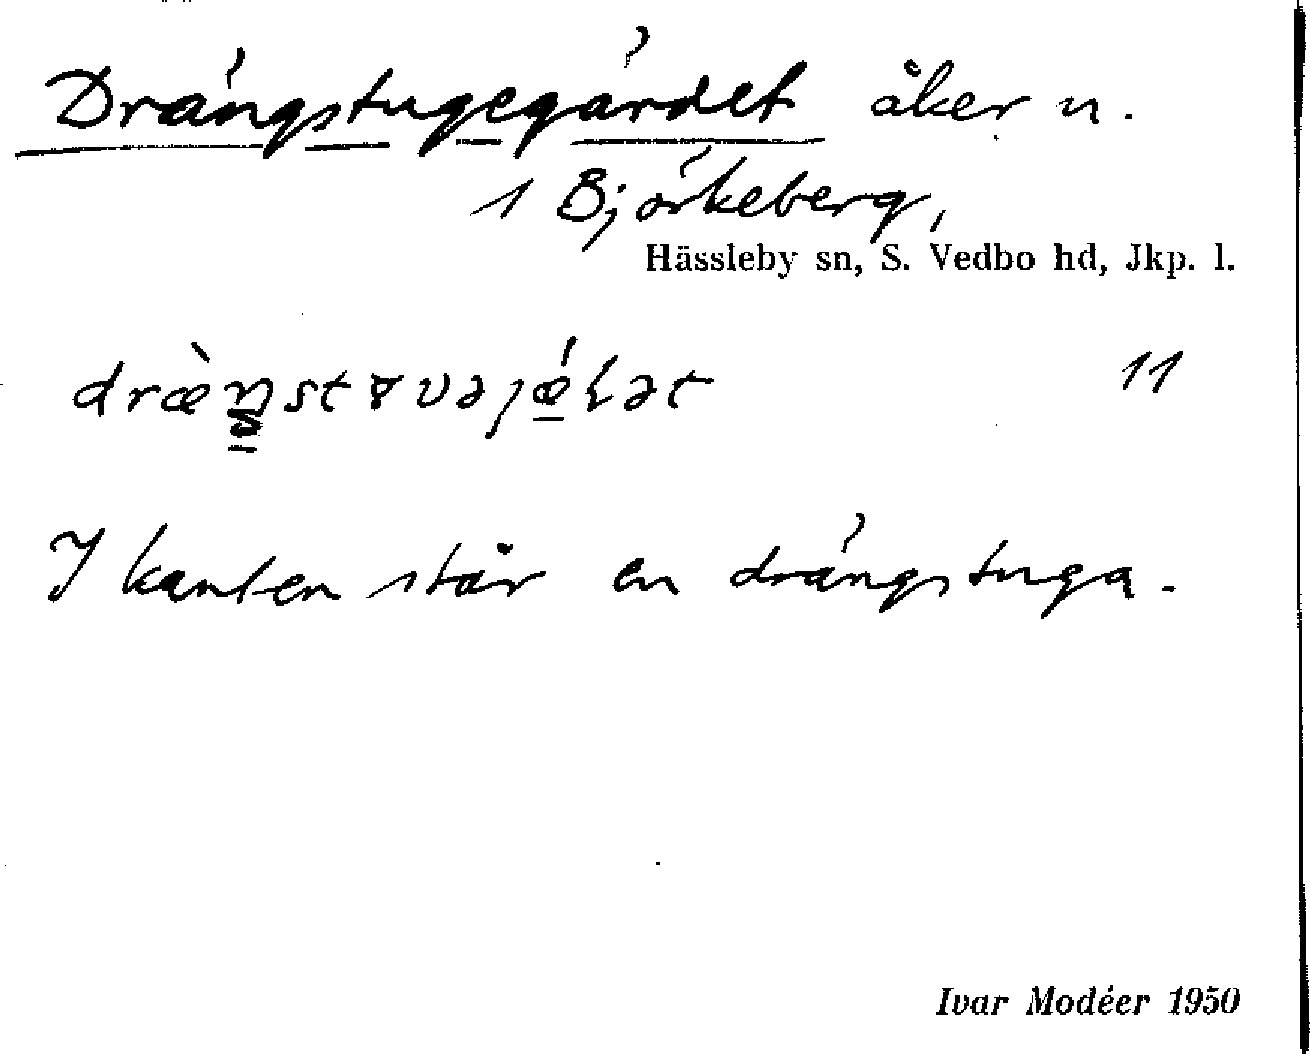 Drängstugegärdet åker n.
1 Björkeberg,
Hässleby sn, S. Vedbo hd, Jkp. l.
11
I kanten står en drängstuga.
Ivar Modéer 1950